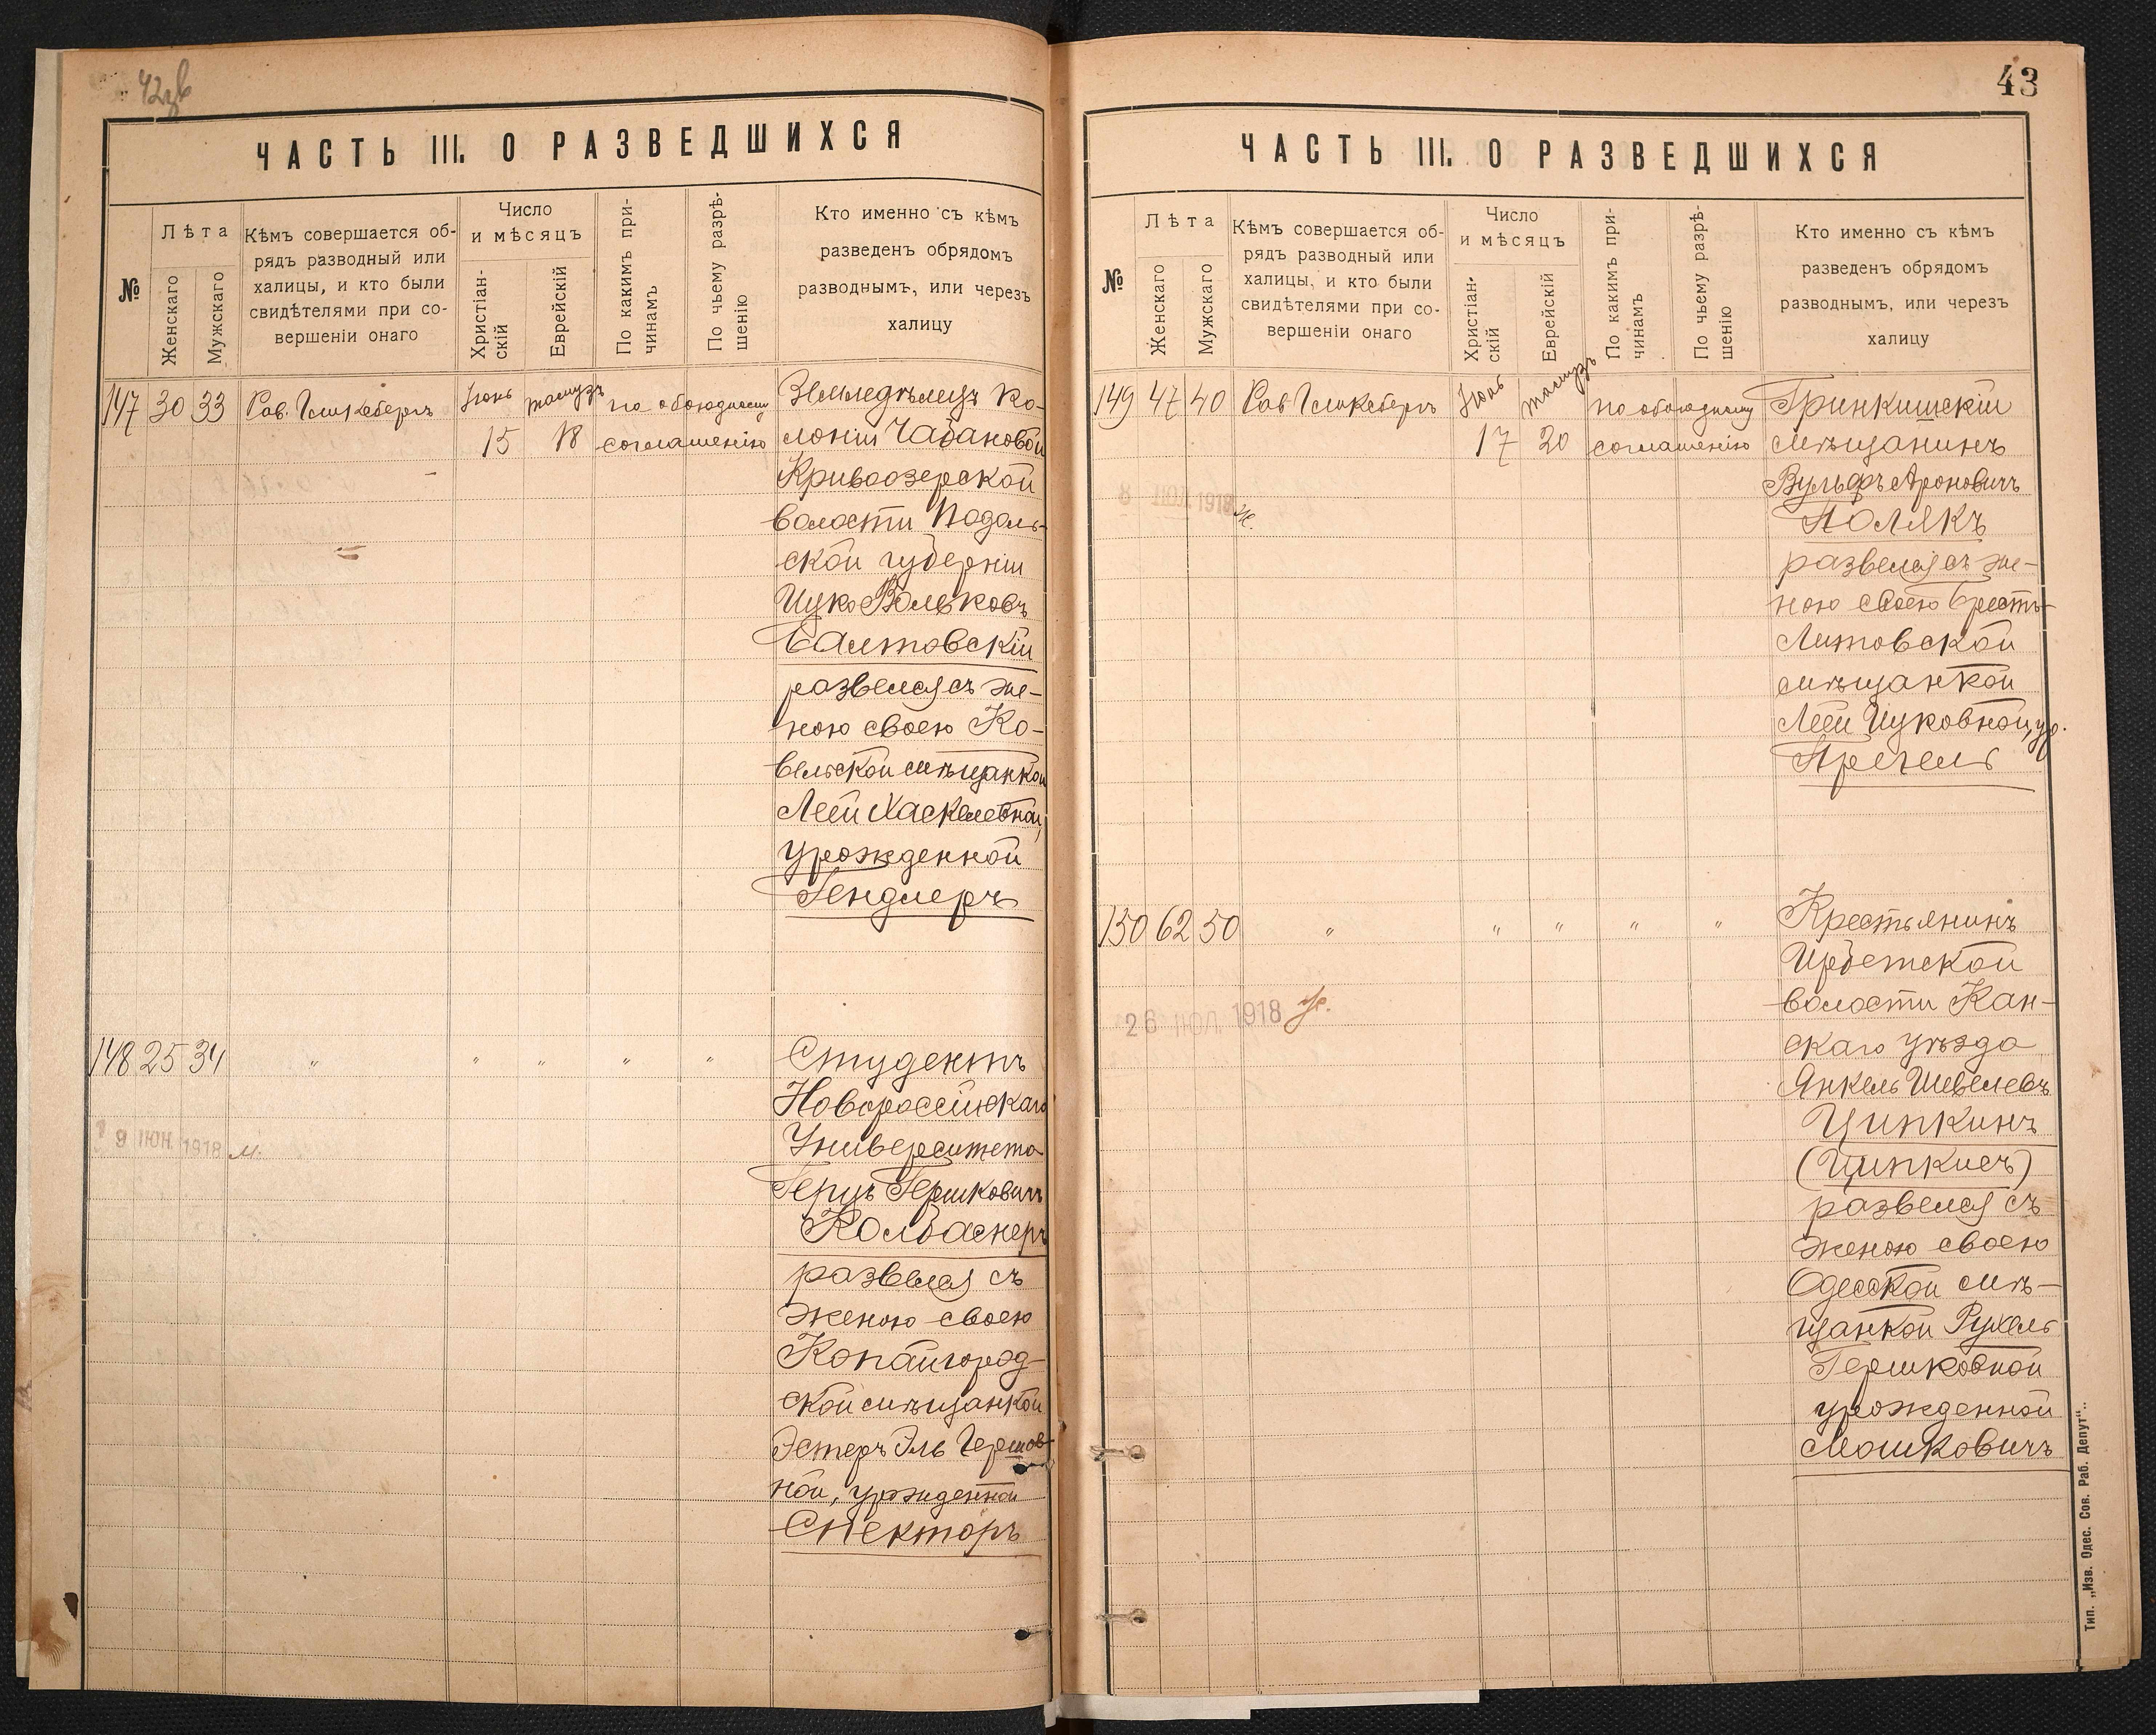 42 зв
ЧАСТЬ III. О РАЗВЕДШИХСЯ
№
Лѣта
Женскаго
Мужскаго
Кѣмъ совершается об-
рядъ разводный или
халицы, и кто были
свидѣтелями при со-
вершеніи онаго
Число
и мѣсяцъ
Христіан-
скій
Еврейскій
По какимъ при-
чинамъ
По чьему разрѣ-
шенію
Кто именно съ кѣмъ
разведенъ обрядомъ
разводнымъ, или черезъ
халицу
147 30 33 Рав. Гликсбергъ Іюнь тамузъ по обоюдному Земледѣлецъ ко-
15 18 соглашенію лоніи Чабановой
Кривоозерской
волости Подоль-
ской губерніи
Ицко Вольковъ
Балтовскій
развелся съ же-
ною своею Ко-
вельской мѣщанкой
Леей Хаскелевной,
урожденной
Гендлеръ
148 25 34 " " " " " Студентъ
Новороссійскаго
Университета
Герцъ Гершковичъ
Колбаснеръ
развелся съ
женою своею
Копайгород-
ской мѣщанкой
Эстеръ Эль Гершов-
ной, урожденной
Спекторъ
9 ІЮН. 1918 м.
43
ЧАСТЬ III. О РАЗВЕДШИХСЯ
№
Лѣта
Женскаго
Мужскаго
Кѣмъ совершается об-
рядъ разводный или
халицы, и кто были
свидѣтелями при со-
вершеніи онаго
Число
и мѣсяцъ
Христіан-
скій
Еврейскій
По какимъ при-
чинамъ
По чьему разрѣ-
шенію
Кто именно съ кѣмъ
разведенъ обрядомъ
разводнымъ, или черезъ
халицу
149 47 40 Рав Гликсбергъ Іюнь тамузъ по обоюдному Гринкишскій
17 20 соглашенію мѣщанинъ
Вульфъ Ароновичъ
Полякъ
развелся съ же-
ною своею Брестъ-
Литовской
мѣщанкой
Леей Ицковной, ур.
Прегель
8 ІЮЛ. 1918 ж.
150 62 50 " " " " " Крестьянинъ
Ирбетской
волости Кан-
скаго уѣзда
Янкель Шевелевъ
Ципкинъ
(Ципкисъ)
развелся съ
женою своею
Одесской мѣ-
щанкой Рухель
Гершковной
урожденной
Мошковичъ
26 ІЮЛ. 1918 ж.
Тип. „Изв. Одес. Сов. Раб. Депут“.